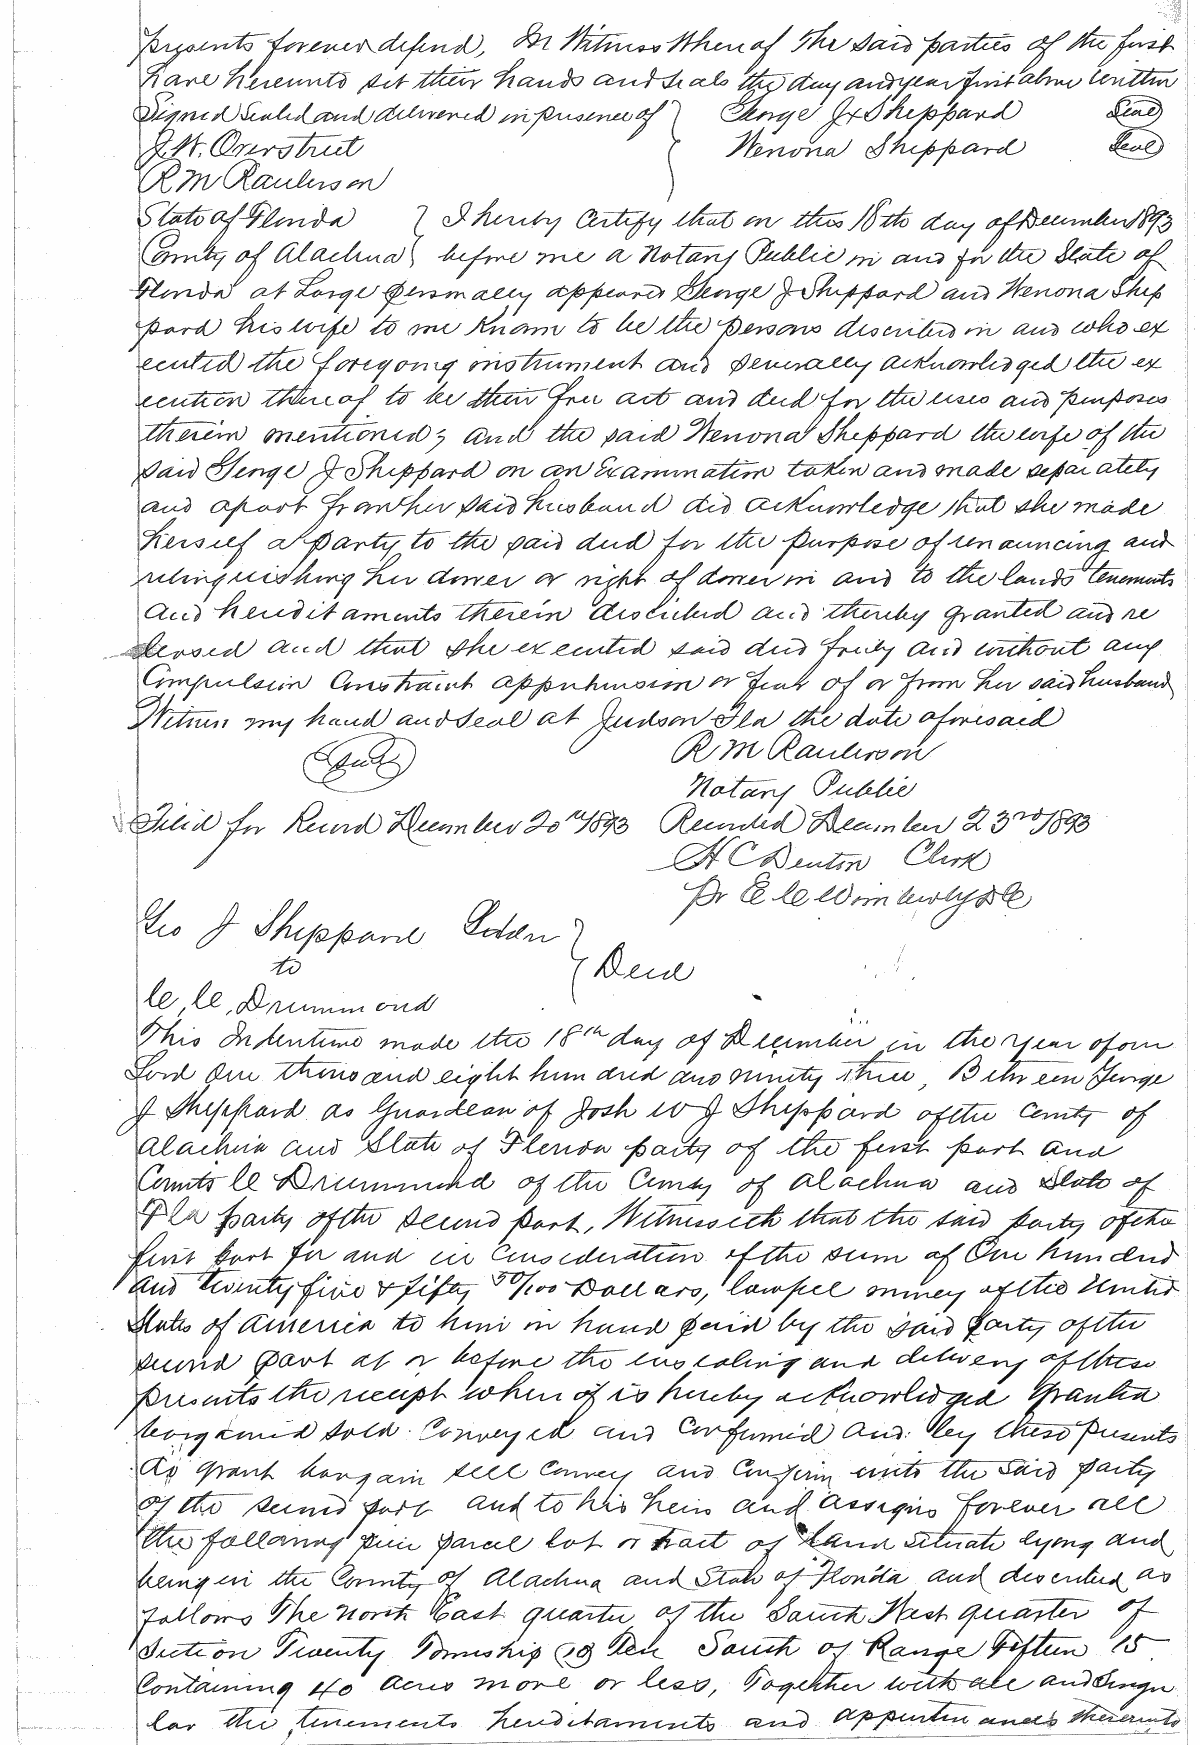 presents forever defend, In Witness Whereof The said parties of the first
have hereunto set their hands and seals the day and year first above written
Signed Sealed and delivered in presence of } George J Sheppard Seal
J. W. Overstreet Wenona Sheppard Seal
R M Raulerson
State of Florida } I hereby Certify that on this 18th day of December 1893
County of Alachua } before me a Notary Public in and for the State of
Florida at Large personally appeared George J Sheppard and Wenona Shep
pard his wife to me known to be the persons described in and who ex
ecuted the foregoing instrument and severally acknowledged the ex
ecution thereof to be their free act and deed for the uses and purposes
therein mentioned; and the said Wenona Sheppard the wife of the
said George J Sheppard on an Examination taken and made separately
and apart from her said husband did acknowledge that she made
herself a party to the said deed for the purpose of renouncing and
relinquishing her dower or right of dower in and to the lands tenements
and hereditaments therein described and thereby granted and re
leased and that she executed said deed freely and without any
Compulsion Constraint apprehension or fear of or from her said husband
Witness my hand and seal at Judson Fla the date aforesaid
Seal R M Raulerson
Notary Public
Filed for Record December 20th 1893 Recorded December 23rd 1893
H C Denton Clerk
Pr C C Wimberly DC
Geo J Sheppard Gdn }
to } Deed
C. C. Drummond
This Indenture made the 18th day of December in the year of our
Lord One thousand eight hundred and ninety three, Between George
J Sheppard as Guardian of Josh W J Sheppard of the County of
Alachua and State of Florida party of the first part and
C Drummond of the County of Alachua and State of
Fla party of the second part, Witnesseth that the said party of the
first part for and in Consideration of the sum of One hundred
and twenty five & fifty 50/100 Dollars, lawful money of the United
States of America to him in hand paid by the said party of the
second part at or before the ensealing and delivery of these
presents the receipt whereof is hereby acknowledged Granted
bargained sold Conveyed and Confirmed and by these presents
do grant bargain sell Convey and Confirm unto the said party
of the second part and to his heirs and assigns forever all
the following piece parcel lot or tract of land situate lying and
being in the County of Alachua and State of Florida and described as
follows The North East quarter of the South West quarter of
Section Twenty Township 10 Ten South of Range Fifteen 15
Containing 40 acres more or less, Together with all and Singu
lar the tenements hereditaments and appurtenances thereunto